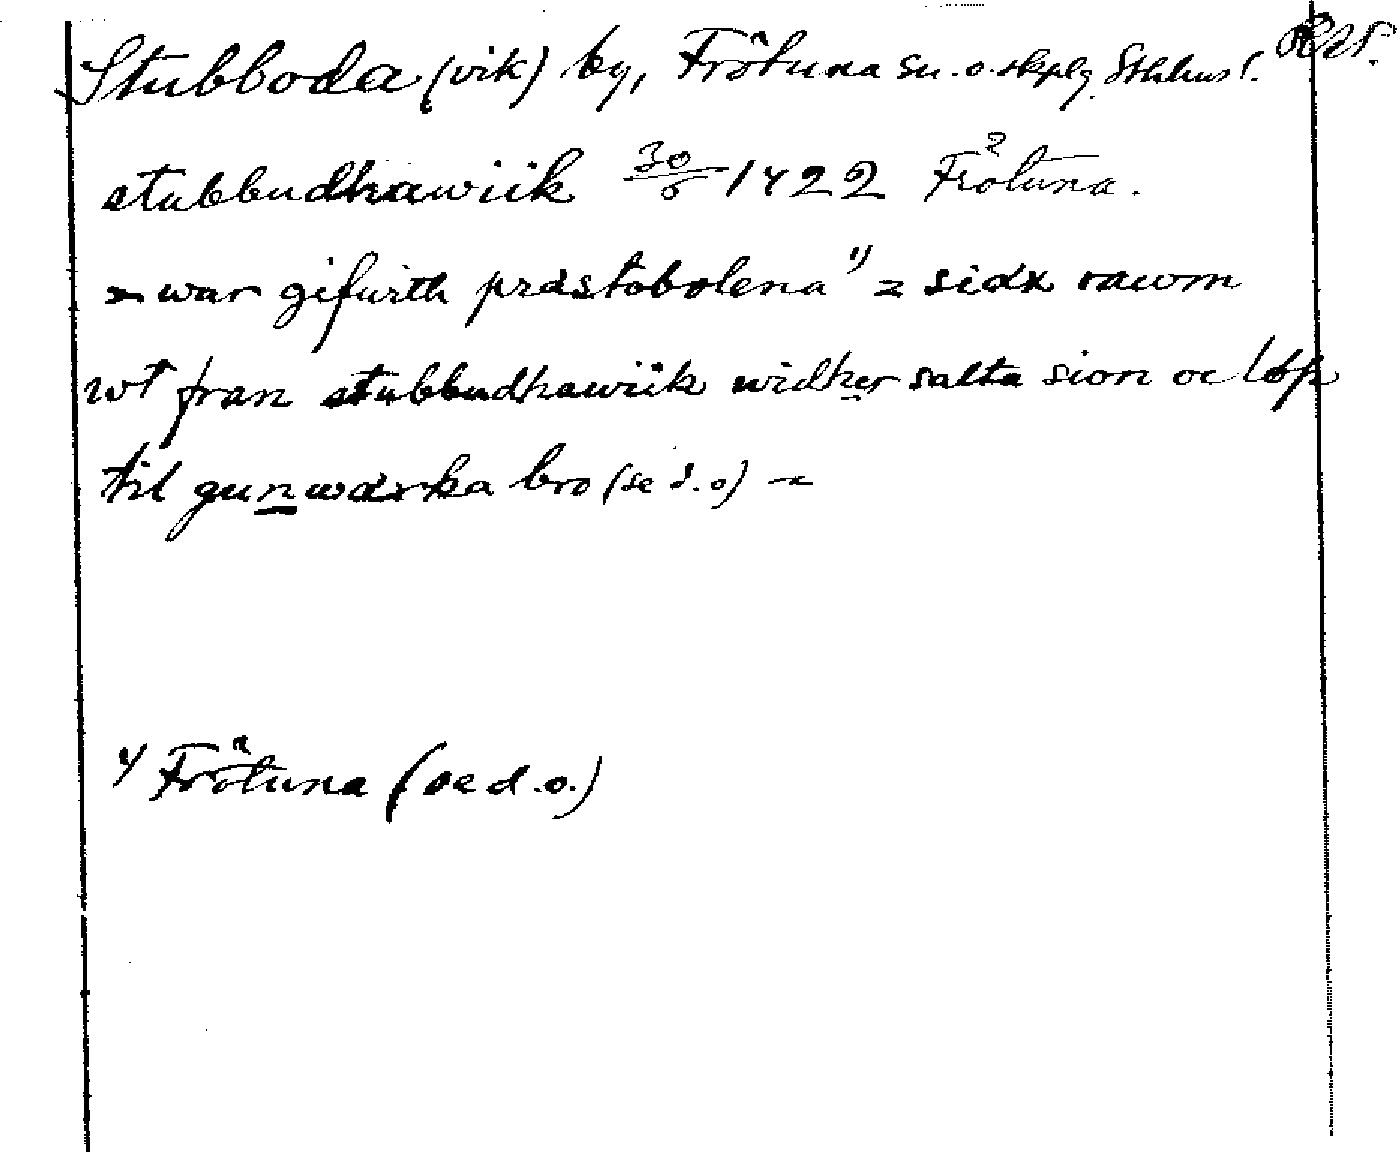 Stubboda (vik) by, Frötuna sn. o. skplg. Sthlms l.
stubbudhawiik 30/6 1422 Frötuna.
= war gifwith prästobolena 1) = sidx rawm
wt fran stubbudhawiik widher salta sion oc löp
til gunwarka bro (se d.o) =
1) Frötuna (se d.o.)